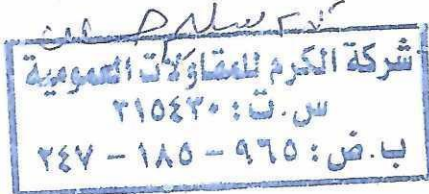 شركة الكرم للمقاولات العمومية
س.ت: ٣١٥٤٣٠
ب.ض: ٩٦٥ - ١٨٥ - ٢٤٧